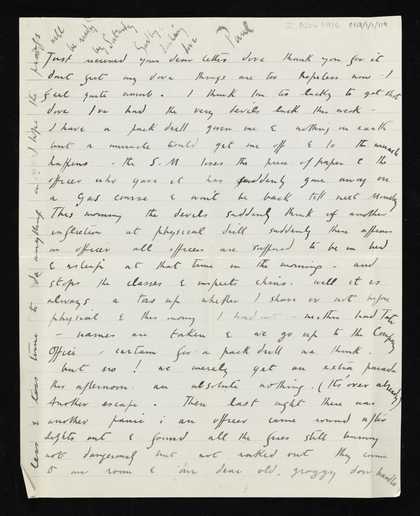 2 Nov 1916
Paul
Just received your dear letter dove thank you for it
dont get my dove things are too hopeless now I
feel quite numb. I think I'm too lucky to get that
dove I've had the very devils luck this week -
I have a pack drill given me & nothing on earth
but a miracle would get me off & lo the miracle
happens - the S.M loses the piece of paper & the
officer who gave it has suddenly gone away on
a Gas course & won't be back till next Monday
This morning the devils suddenly think of another
infliction at physical drill suddenly there appears
an officer all officers are supposed to be in bed
& asleep at that time in the morning. and
stops the classes & inspects chins. well it is
always a toss up whether I shave or not before
physical & this morng I had not - neither had Tate
- names are taken & we go up to the Company
Office - certain for a pack drill we think.
but no! we merely get an extra parade
this afternoon an absolute nothing. (Its over already)
Another escape. Then last night there was
another panic: an officer came round after
Lights out & found all the fires still burning
not dangerously but not raked out they come
to our room & our dear old groggy
less & less time to do anything in. I hope the proofs
will be ready
by Saturday